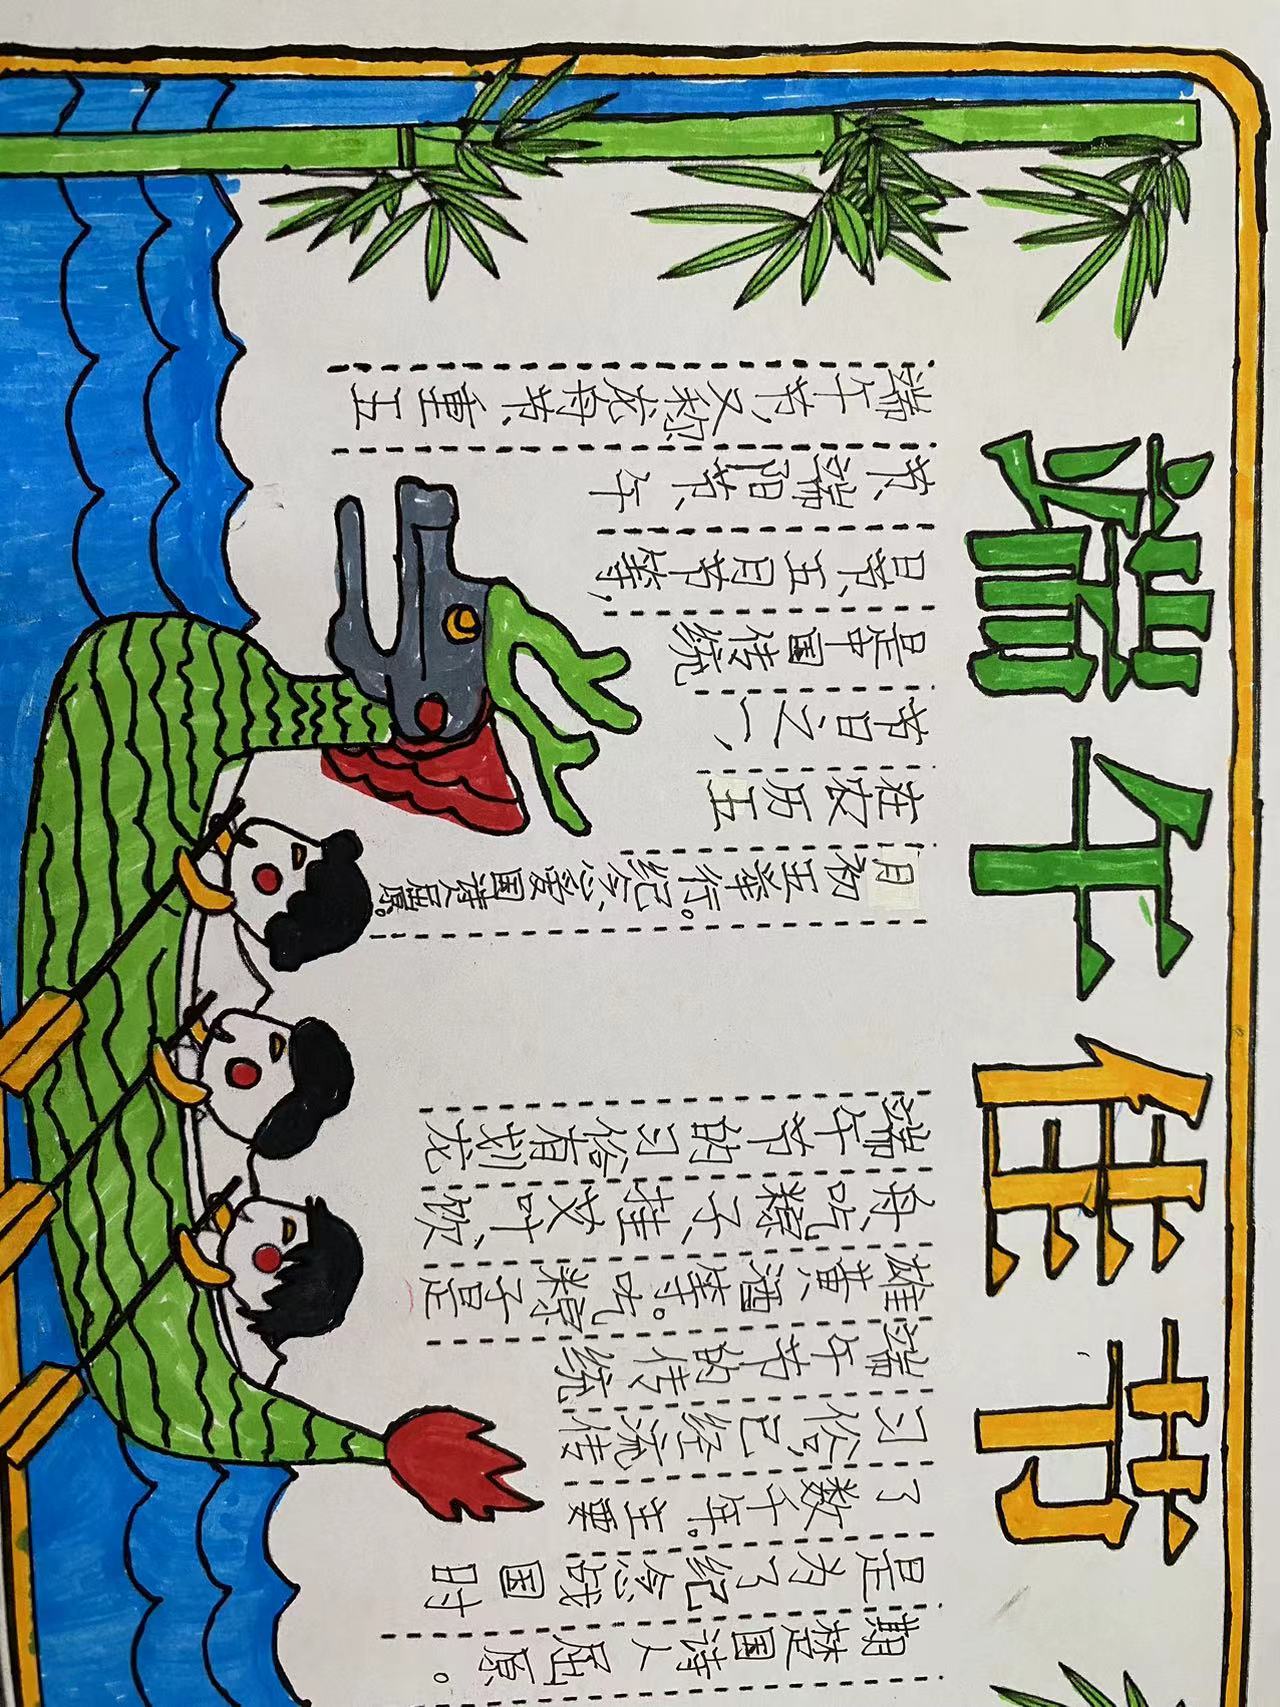 端午佳节
端午节,又称龙舟节、重五
节、端阳节、午
日节、五月节等,
是中国传统
节日之一,
在农历五
月初五举行。纪念爱国诗人屈原。
端午节的习俗有划龙
舟、吃粽子、挂艾叶、饮
雄黄酒等。吃粽子是
端午节的传统
习俗,已经流传
了数千年。主要
是为了纪念战国时
期楚国诗人屈原。